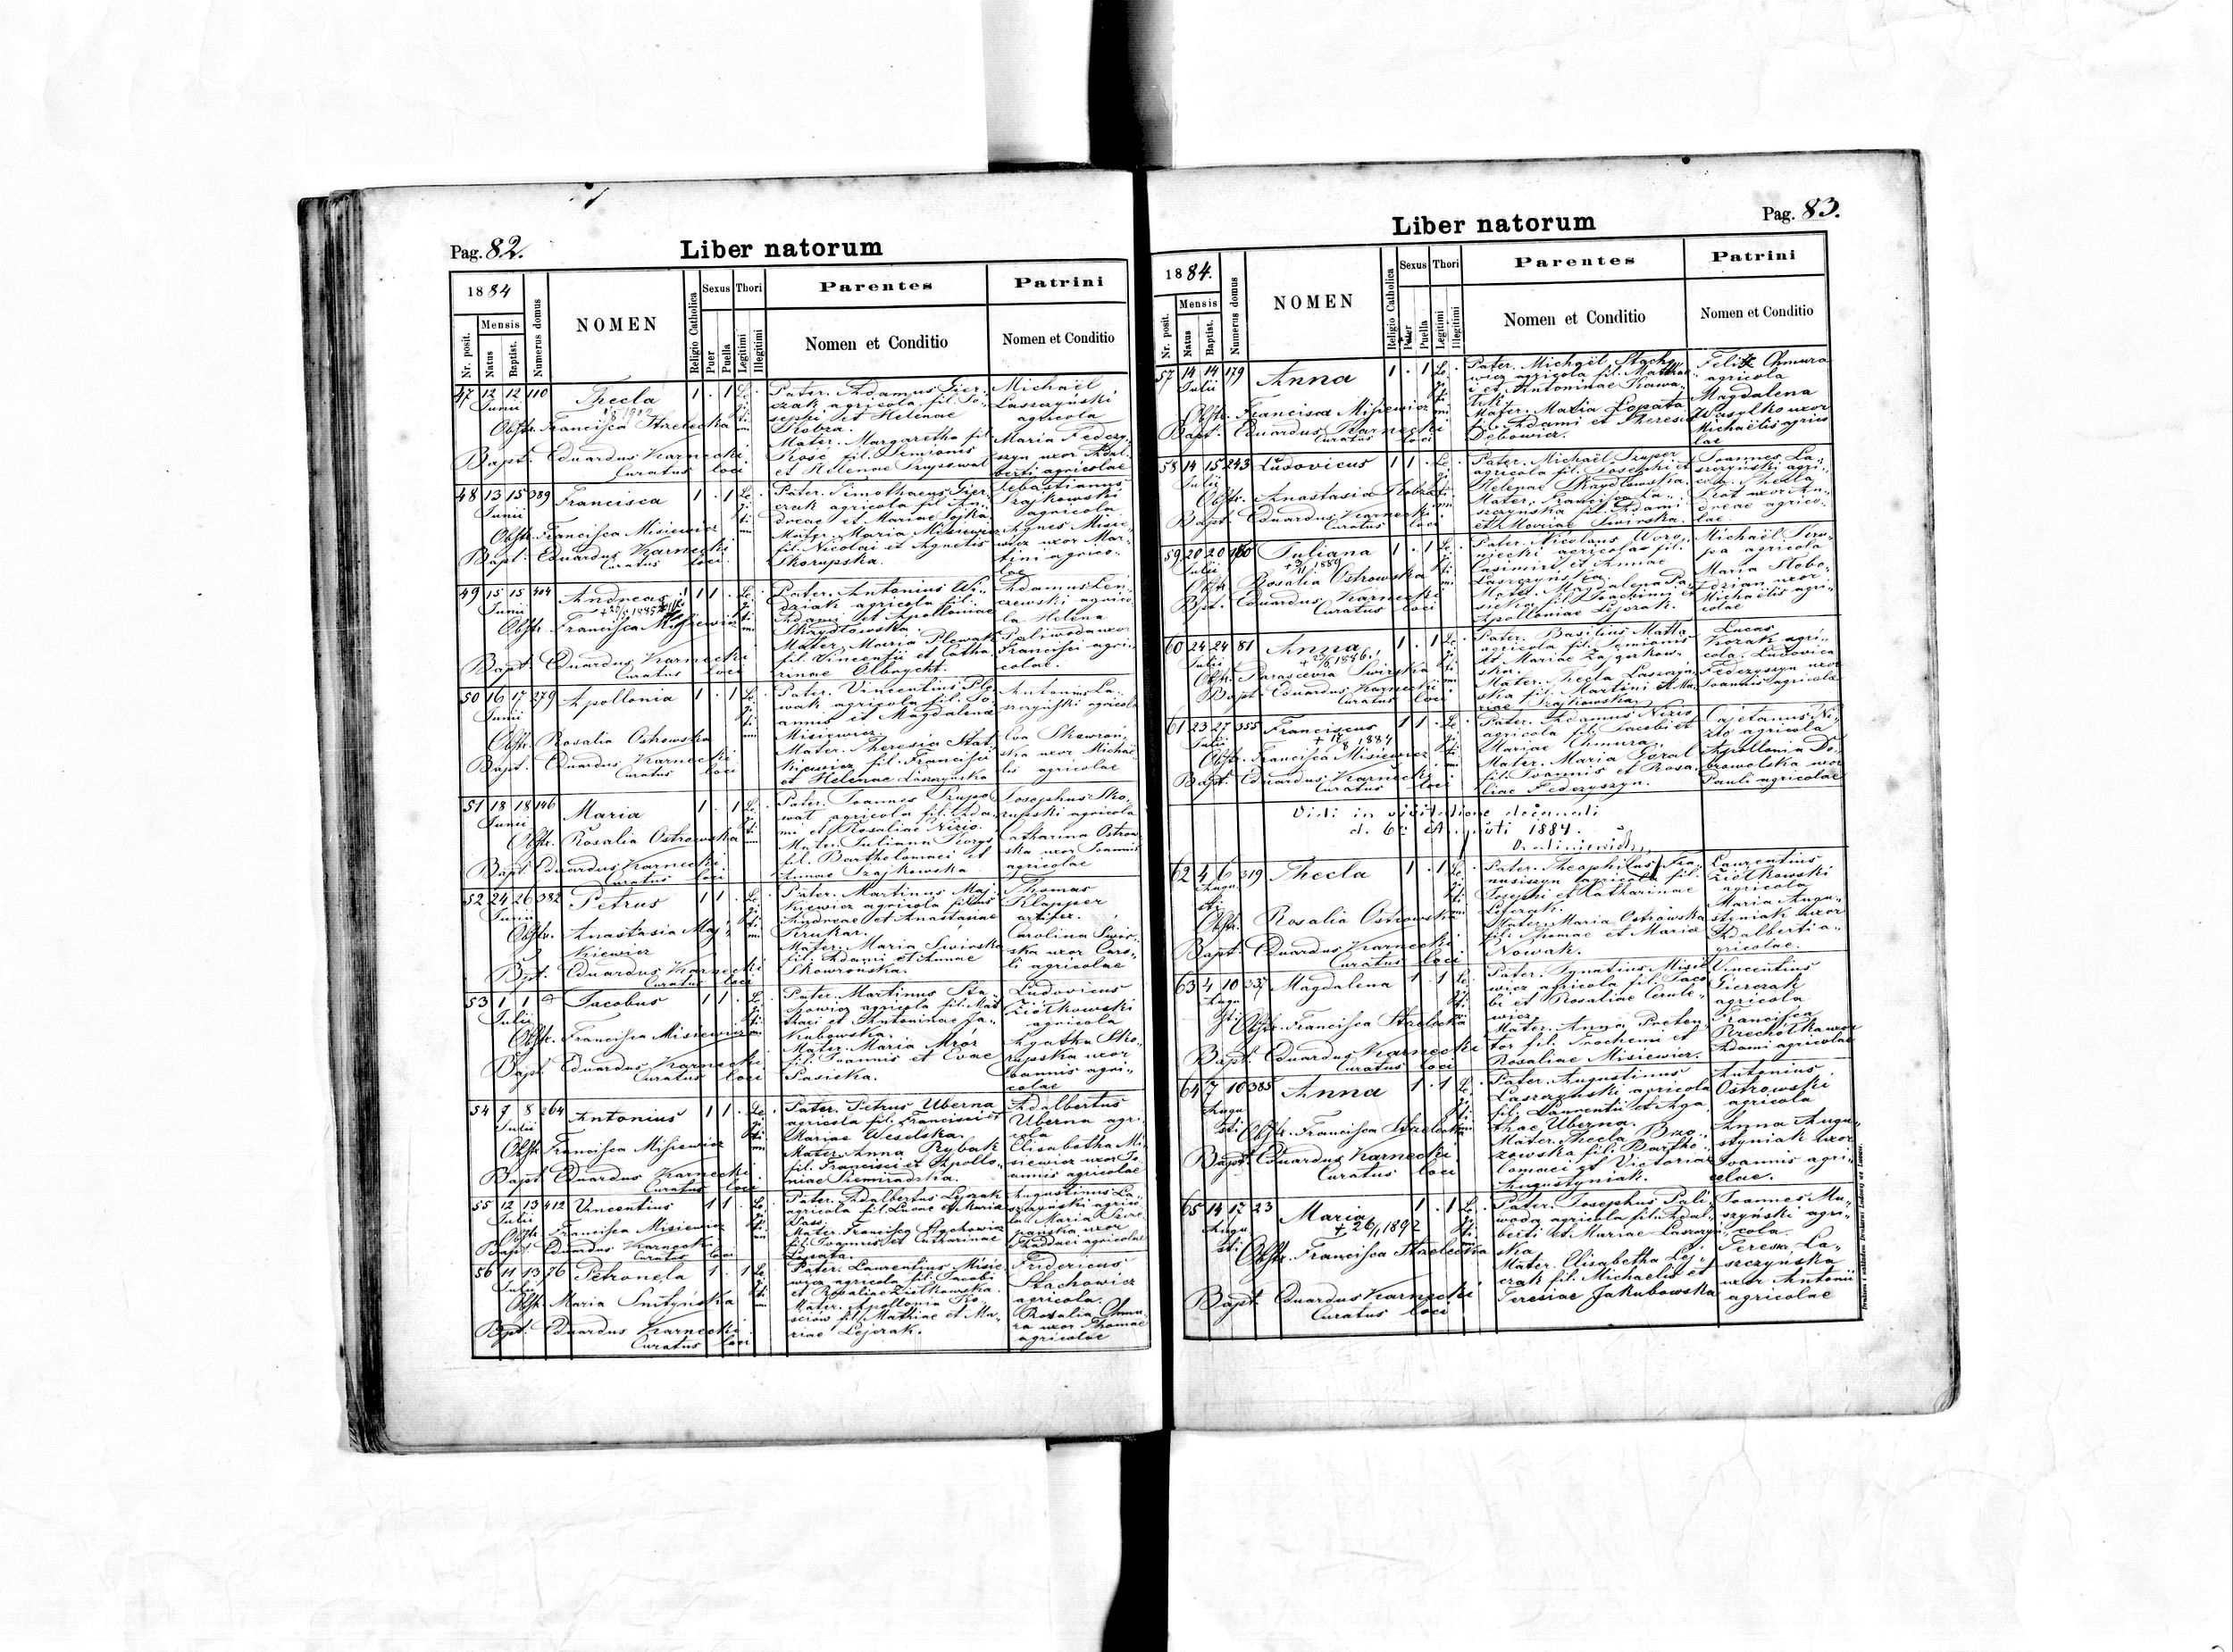 Pag. 82.
Liber natorum
1884
Nr. posit.
Mensis
Natus
Baptist.
Numerus domus
NOMEN
Religio Catholica
Sexus
Puer
Puella
Thori
Legitimi
Illegitimi
Parentes
Nomen et Conditio
Patrini
Nomen et Conditio
47 12 12 110 Thecla 1 . 1
Junii
Obstr. Francisca Strzelecka
Bapt. Eduardus Karnecki
Curatus loci
Pater. Adamus Gier-
czak agricola fil. Jo-
sephi et Helenae
Kobza.
Mater. Margaretha fil
Kość fil. Semionis
et Helenae
Michaël
Laszczyński
agricola
Maria Fedczy-
szyn uxor Adal-
berti agricolae
48 13 15 389 Francisca 1 . 1
Junii
Obstr. Francisca Misiewicz
Bapt. Eduardus Karnecki
Curatus loci
Pater. Timothaeus Gier-
czak agricola fil. An-
dreae et Mariae Sojka
Mater. Maria Misiewicz
fil. Nicolai et Agnetis
Skorupska.
Sebastianus
Szajkowski
agricola
Agnes Misie-
wicz uxor Mar-
tini agrico-
lae
49 15 15 404 Andreas 1 1 .
Junii
Obstr. Francisca Misiewicz
Bapt. Eduardus Karnecki
Curatus loci
Pater. Antonius Wi-
dziak agricola fil.
Adami et Apolloniae
Skrzydłowska.
Mater. Maria Plewak
fil. Vincentii et Catha
rinae Olbrycht.
Adamus Len-
czewski agrico
la. Helena
Paliwoda uxor
Francisci agri-
colae.
50 16 17 279 Apollonia 1 . 1
Junii
Obstr. Rosalia Ostrowska
Bapt. Eduardus Karnecki
Curatus loci
Pater. Vincentius Ple
wak agricola fil. Jo-
annis et Magdalena
Misiewicz.
Mater. Theresia Stat
kiewicz fil. Francisci
et Helenae Liszczyńska
Antonius La-
szczyński agricola
Eva Skowron-
ska uxor Michaë
lis agricolae
51 18 18 146 Maria 1 . 1
Junii
Obstr. Rosalia Ostrowska
Bapt. Eduardus Karnecki
Curatus loci
Pater. Joannes Szupo
wat agricola fil. Ada-
mi et Rosaliae Nizio.
Mater. Juliana Korys
fil. Bartholomaei et
Annae Szajkowska
Josephus Sko-
rupski agricola
Catharina Ostrow
ska uxor Joannis
agricolae
52 24 26 382 Petrus 1 1 .
Junii
Obstr. Anastasia Maj-
kiewicz
Bapt. Eduardus Karnecki
Curatus loci
Pater. Martinus Maj-
kiewicz agricola filius
Andreae et Anastasiae
Krukar.
Mater. Maria Swirska
fil. Adami et Annae
Skowronska.
Thomas
Klapper
artifex.
Carolina Swir-
ska uxor Caro-
li agricolae
53 1 1 Jacobus 1 1 .
Julii
Obstr. Francisca Misiewicz
Bapt. Eduardus Karnecki
Curatus loci
Pater. Martinus Sta
chowicz agricola fil. Mat
thaei et Antoninae Ja-
kubowska.
Mater. Maria Mróz
fil. Joannis et Evae
Pasieka.
Ludovicus
Ziółkowski
agricola
Agatha Sko-
rupska uxor
Joannis agri-
colae
54 7 8 264 Antonius 1 1 .
Julii
Obstr. Francisca Misiewicz
Bapt. Eduardus Karnecki
Curatus loci
Pater. Petrus Uberna
agricola fil. Francisci et
Mariae Weselska.
Mater. Anna Rybak
fil. Francisci et Apollo-
niae
Adalbertus
Uberna agri-
cola
Elisabetha Mi
siewicz uxor Jo
annis agricolae
55 12 13 412 Vincentius 1 1 .
Julii
Obstr. Francisca Misiewicz
Bapt. Eduardus Karnecki
Curatus loci
Pater. Adalbertus Lejczak
agricola fil. Lucae et Mariae
Sass.
Mater. Francisca Stachowicz
fil. Joannis et Catharinae
Łopata.
Augustinus La-
szczyński agrico
la. Maria
uxor
Thaddaei agricolae
56 11 13 76 Petronela 1 . 1
Julii
Obstr. Maria Snityńska
Bapt. Eduardus Karnecki
Curatus loci
Pater. Laurentius Misie
wicz agricola fil. Jacobi
et Rosaliae Ziółkowska.
Mater. Apollonia Ko-
sciów fil. Mathiae et Ma-
riae Lejczak.
Fridericus
Stachowicz
agricola.
Rosalia Chmu
ra uxor Thomae
agricolae
Pag. 83.
Liber natorum
1884.
Nr. posit.
Mensis
Natus
Baptist.
Numerus domus
NOMEN
Religio Catholica
Sexus
Puer
Puella
Thori
Legitimi
Illegitimi
Parentes
Nomen et Conditio
Patrini
Nomen et Conditio
57 14 14 179 Anna 1 . 1
Julii
Obstr. Francisca Misiewicz
Bapt. Eduardus Karnecki
Curatus loci
Pater. Michaël Stacho-
wicz agricola fil. Matthae
i et Antoninae
Mater. Maria Łopata
fil. Adami et Theresia
Dębowicz.
Felix Chmura
agricola
Magdalena
Wasylko uxor
Michaëlis agrico
lae
58 14 15 243 Ludovicus 1 1 .
Julii
Obstr. Anastasia Kobza
Bapt. Eduardus Karnecki
Curatus loci
Pater. Michaël Szuper
agricola fil. Josephi et
Helenae Skrzydłowska.
Mater. Francisca La-
szczyńska fil. Adami
et Mariae Swirska.
Joannes La-
szczyński agri-
cola. Thecla
uxor An-
dreae agrico-
lae.
59 20 20 160 Juliana 1 . 1
Julii
+ 1889
Obstr. Rosalia Ostrowska
Bapt. Eduardus Karnecki
Curatus loci
Pater. Nicolaus Woro-
niecki agricola fil.
Casimiri et Annae
Laszczyńska.
Mater. Magdalena Pa-
sieka fil. Joachimi et
Apolloniae Lejczak.
Michaël
agricola
Maria Słobo-
dzian uxor
Michaëlis agri-
colae
60 24 24 81 Anna 1 . 1
Julii
+ 23/8 1886.
Obstr. Parascevia Swirska
Bapt. Eduardus Karnecki
Curatus loci
Pater. Basilius Matła
agricola fil. Semionis
et Mariae
Mater. Thecla Laszczyń
ska fil. Martini et Ma
riae Szajkowska.
Lucas
Kozak agri-
cola. Ludovica
Fedczyszyn uxor
Joannis agricolae
61 23 27 355 Franciscus 1 1 .
Julii
+ 17/8 1884
Obstr. Francisca Misiewicz
Bapt. Eduardus Karnecki
Curatus loci
Pater. Adamus Nizio
agricola fil. Jacobi et
Mariae Chmura.
Mater. Maria Goral
fil. Joannis et Rosa-
liae Fedczyszyn.
Cajetanus Ni-
zio agricola
Apollonia Do-
browolska uxor
Pauli agricolae
Vidi in visitatione decanali
d. 6 Augusti 1884.
62 4 6 319 Thecla 1 . 1
Augusti
Obstr. Rosalia Ostrowska
Bapt. Eduardus Karnecki
Curatus loci
Pater. Theophilus
agricola fil.
Josephi et Katharinae
Lejczak.
Mater. Maria Ostrowska
fil. Thomae et Maria
Nowak.
Laurentius
Ziółkowski
agricola
Maria Augu-
styniak uxor
Adalberti a-
gricolae.
63 4 10 337 Magdalena 1 . 1
Augusti
Obstr. Francisca Strzelecka
Bapt. Eduardus Karnecki
Curatus loci
Pater. Ignatius Misie
wicz agricola fil. Jaco
bi et Rosaliae Cerule-
wicz.
Mater. Anna Preten
tor fil. Trochemi et
Rosaliae Misiewicz.
Vincentius
Gierczak
agricola
Francisca
Rzechółka uxor
Adami agricolae
64 7 10 385 Anna 1 . 1
Augusti
Obstr. Francisca Strzelecka
Bapt. Eduardus Karnecki
Curatus loci
Pater. Augustinus
Laszczyński agricola
fil. Laurentii et Aga
thae Uberna.
Mater. Thecla Brzo-
zowska fil. Bartho-
lomaei et Victoriae
Augustyniak.
Antonius
Ostrowski
agricola
Anna Augu-
styniak uxor
Joannis agri-
colae.
65 14 17 23 Maria 1 . 1
Augusti
+ 26/1 1892
Obstr. Francisca Strzelecka
Bapt. Eduardus Karnecki
Curatus loci
Pater. Josephus Pali-
woda agricola fil. Adal-
berti et Mariae Laszczyń-
ska
Mater. Elisabetha Lej-
czak fil. Michaelis et
Teresiae Jakubowska
Joannes Mu-
szyński agri-
cola.
Teresa La-
szczyńska
uxor Antonii
agricolae